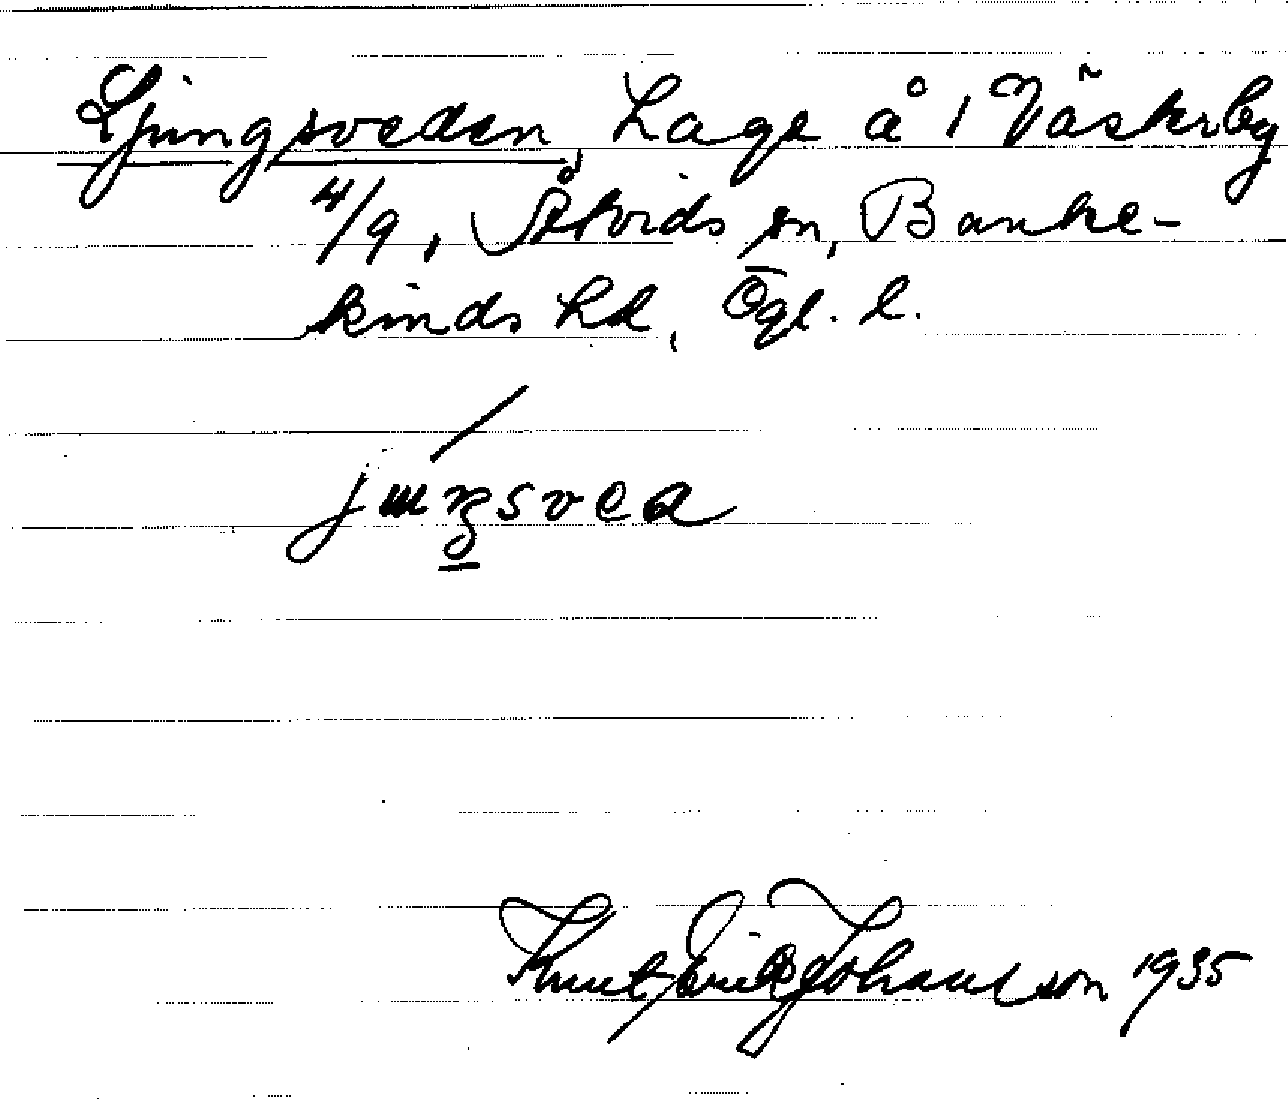 Ljungsveden, Lage å 1 Väskerby
4/9, Åtvids sn, Banke-
kinds hd, Ögl. l.
Knut Erik Johansson 1935